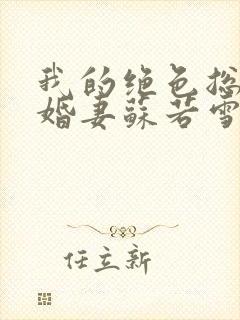 我的绝色总
婚妻苏若雪
任立新